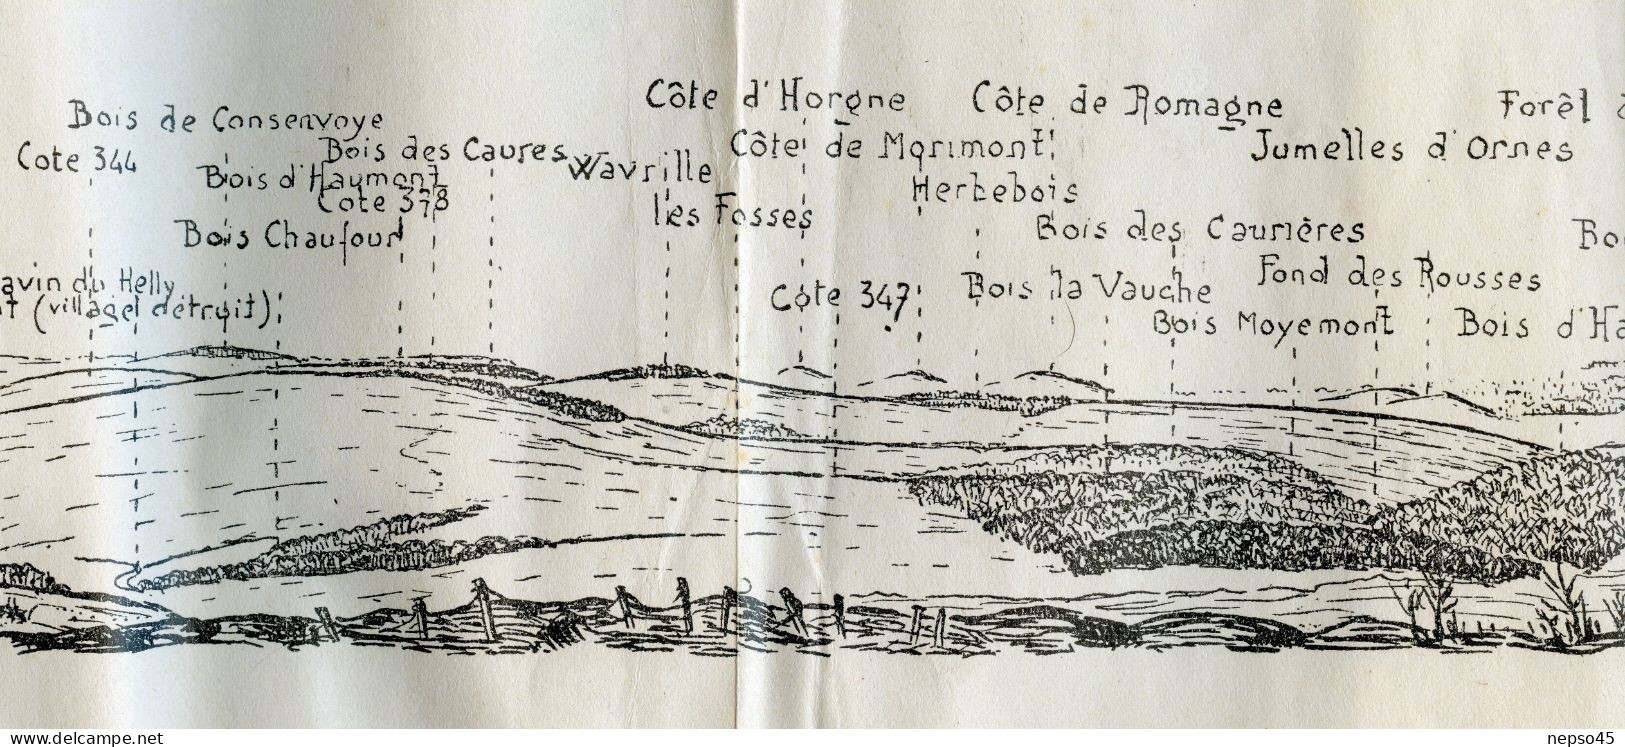 Côte d'Horgne
Côte de Romagne
Forêt
Bois de Consenvoye
Côte de Morimont
Jumelles d'Ornes
Cote 344
Bois des Caures
Wavrille
Bois d'Haumont
Herbebois
Cote 378
les Fosses
Bois Chaufour
Bois des Caurières
Bo
avin du Helly
Fond des Rousses
t (village détruit)
Cote 347
Bois la Vauche
Bois Moyemont
Bois d'Ha
www.delcampe.net
nepso45